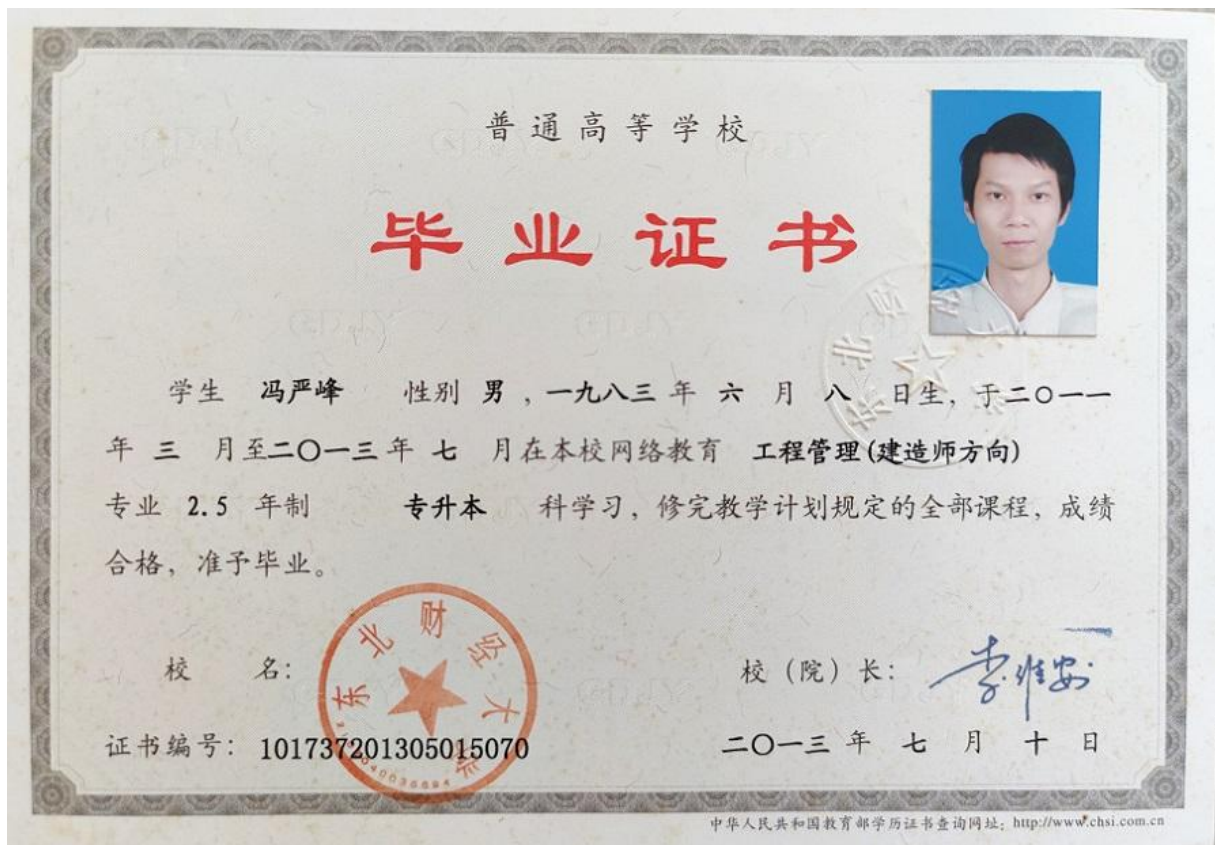 普通高等学校
毕业证书
学生 冯严峰 性别 男 ，一九八三 年 六 月 八 日生，于二〇一一
年 三 月至二〇一三年 七 月在本校网络教育 工程管理(建造师方向)
专业 2.5 年制 专升本 科学习，修完教学计划规定的全部课程，成绩
合格，准予毕业。
校 名：
东北财经大学
校（院）长：
李维安
证书编号：101737201305015070
二〇一三 年 七 月 十 日
中华人民共和国教育部学历证书查询网址：http://www.chsi.com.cn